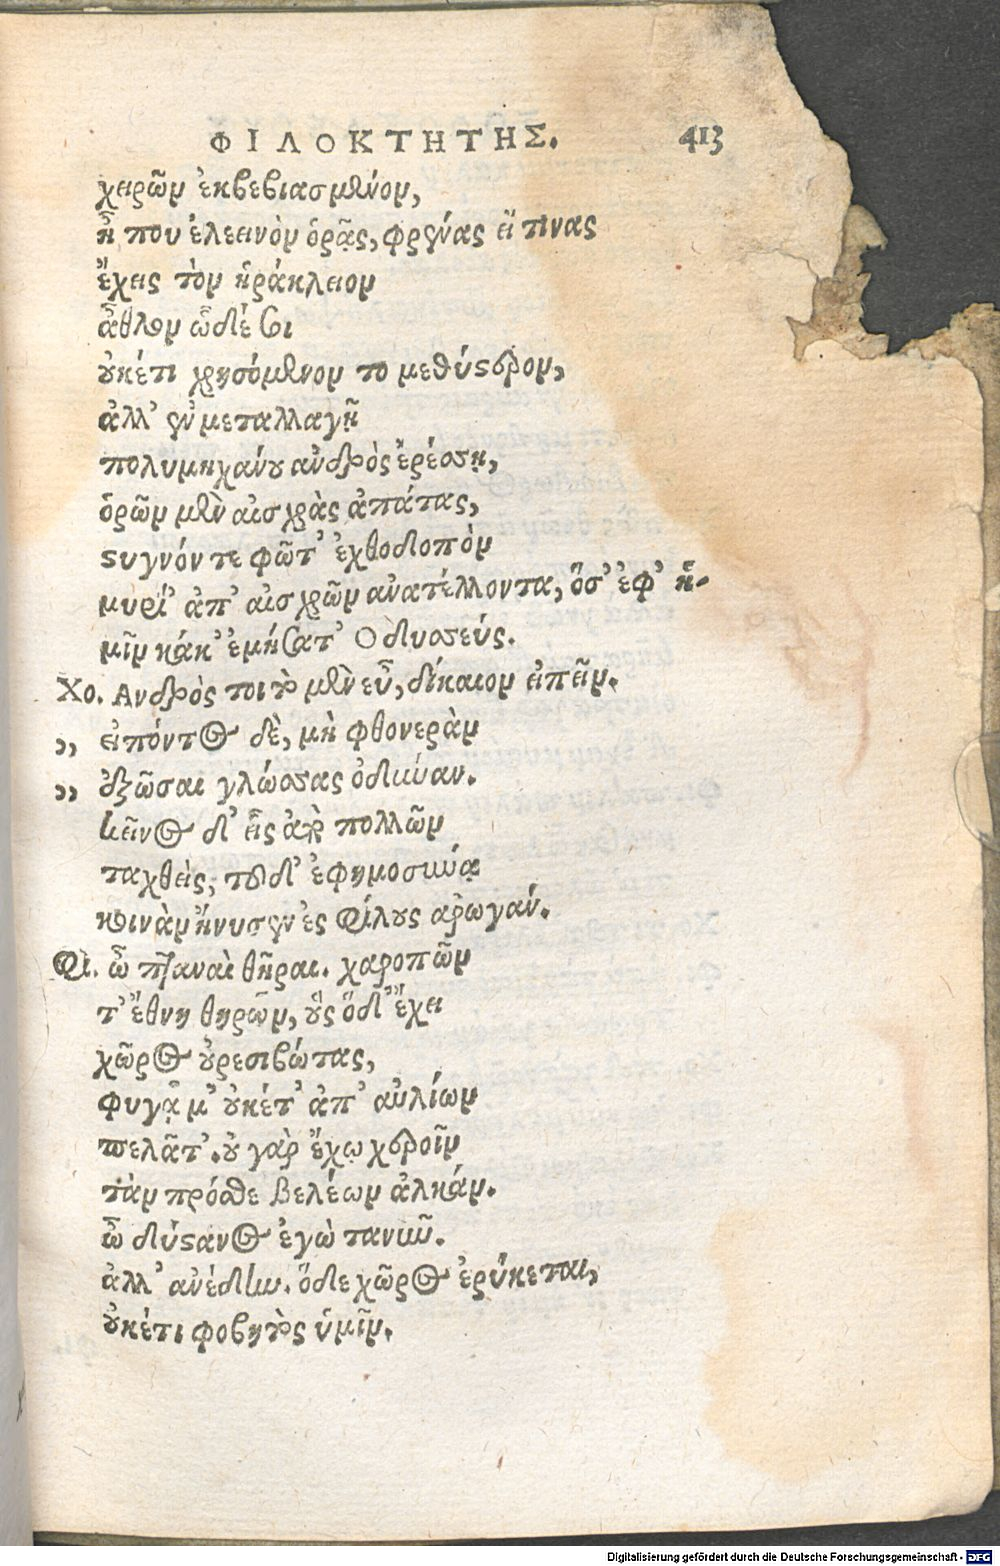 ΦΙΛΟΚΤΗΤΗΣ. 413
χειρῶν ἐκβεβιασμένον,
ἦ που ἐλεεινὸν ὁρᾷς, φρένας εἴ τινας
ἔχεις τὸν ἡράκλειον
ἆθλον ὧδέ σοι
οὐκέτι χρησόμενον το μεθύστερον,
ἀλλ' ἐν μεταλλαγῇ
πολυμηχάνου ανδρὸς ἐρέσσῃ,
ὁρῶν μὲν αἰσχρὰς ἀπάτας,
στυγνόν τε φῶτ' ἐχθοδοπὸν
μυρί' ἀπ' αἰσχρῶν ανατέλλοντα, ὅσ' ἐφ' ἡ-
μῖν κάκ' ἐμήσατ' Οδυσσεύς.
Χο. Ανδρὸς τοι τὸ μὲν εὖ, δίκαιον εἰπεῖν.
,, εἰπόντος δὲ, μὴ φθονερὰν
,, ἐξῶσαι γλώσσας ὀδύναν.
κεῖνος δ' εἷς ἀπὸ πολλῶν
ταχθεὶς, τοῦδ' ἐφημοσύνᾳ
κοινὰν ἤνυσεν ἐς φίλους αρωγάν.
Φι. ὦ πταναὶ θῆραι. χαροπῶν
τ' ἔθνη θηρῶν, οὓς ὅδ' ἔχει
χῶρος οὐρεσιβώτας,
φυγᾷ μ' οὐκέτ' ἀπ' αὐλίων
πελᾶτ'. οὐ γὰρ ἔχω χεροῖν
τὰν πρόσθε βελέων ἀλκάν.
ὦ δύστανος ἐγὼ τανῦν.
ἀλλ' ανέδην. ὅδε χῶρος ἐρύκεται,
οὐκέτι φοβητὸς ὑμῖν.
Digitalisierung gefördert durch die Deutsche Forschungsgemeinschaft - DFG